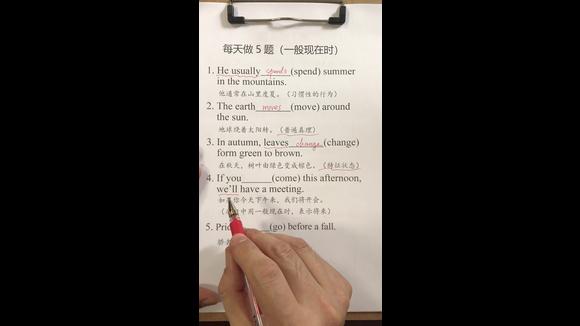 每天做 5 题（一般现在时）
1. He usually spends (spend) summer
in the mountains.
他通常在山里度夏。（习惯性的行为）
2. The earth moves (move) around
the sun.
地球绕着太阳转。（普遍真理）
3. In autumn, leaves change (change)
form green to brown.
在秋天，树叶由绿色变成棕色。（特征状态）
4. If you______(come) this afternoon,
we'll have a meeting.
如果你今天下午来，我们将开会。
中用一般现在时，表示将来）
5. Prid (go) before a fall.
骄